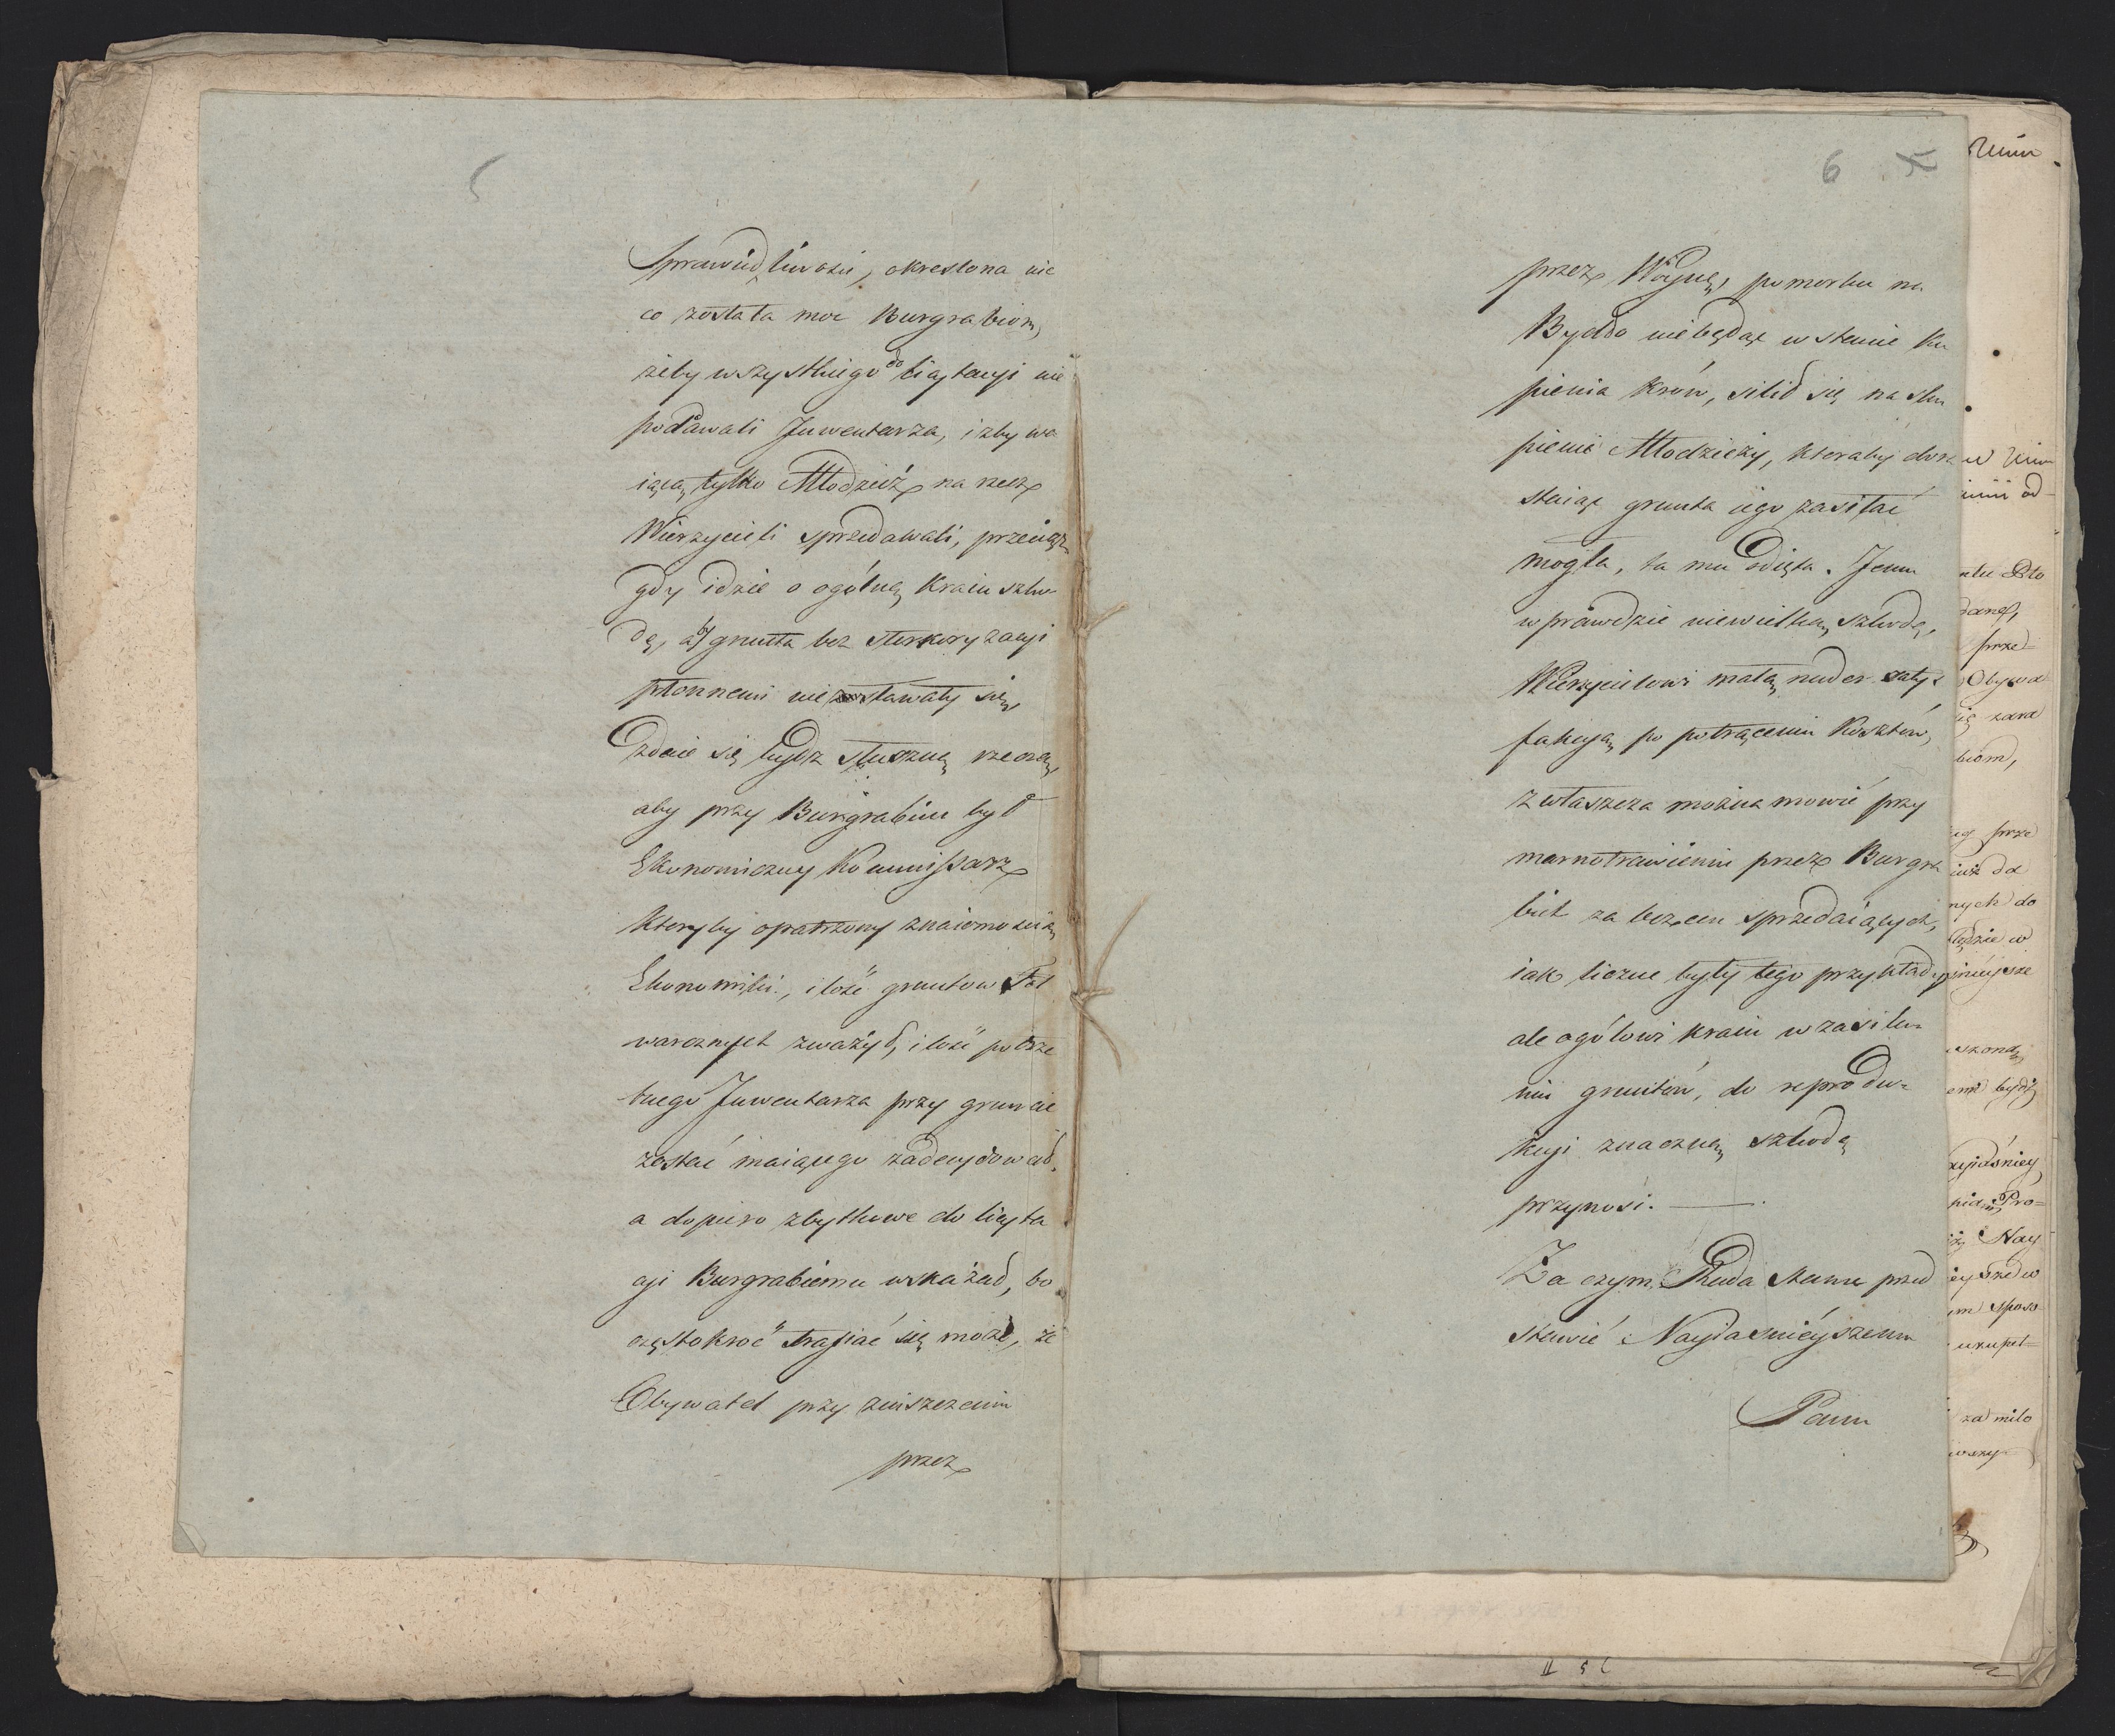 5
Sprawiedliwości, okreslona nie
co została moc Burgrabiom,
żeby wszystkiego do licytacyi nie
podawali Inwentarza, i zbywa
iącą tylko Młodzież na rzecz
Wierzycieli sprzedawali, przeciąż
gdy idzie o ogólną Kraiu szko
dę, aby grunta bez sterkoryzacyi
płonnemi nie zostawały się,
zdaie się bydz słuszną rzeczą,
aby przy Burgrabim był
Ekonomiczny Kommissarz
któryby opatrzony znaiomością
Ekonomiki, ilość gruntow Fol
warcznych zważył, ilość potrze
bnego Inwentarza przy gruncie
zostać maiącego zadecydował,
a dopiero zbytkowe do licyta
cyi Burgrabiemu wskazał, bo
częstokroć trafiać się może, że
Obywatel przy zniszczeniu
przez
6 5
przez Woynę, pomorku na
Bydło niebędąc w stanie Ku
pienia Krów, silił się na sku
pienie Młodzieży, ktoraby dora
staiąc grunta iego zasilać
mogła, ta mu odięta. Jemu
wprawdzie niewielką szkodę,
Wierzycielowi małą nader satys
fakcyą po potrąceniu Kosztów,
zwłaszcza można mowić przy
marnotrawieniu przez Burgra
bich za bezcen sprzedaiących,
iak liczne były tego przykłady,
ale ogółowi kraiu w zasile
niu gruntów, do reproduk
kcyi znaczną szkodę
przynosi. —
Za czym Rada Stanu przed
stawić Nayiasnieyszemu
Panu